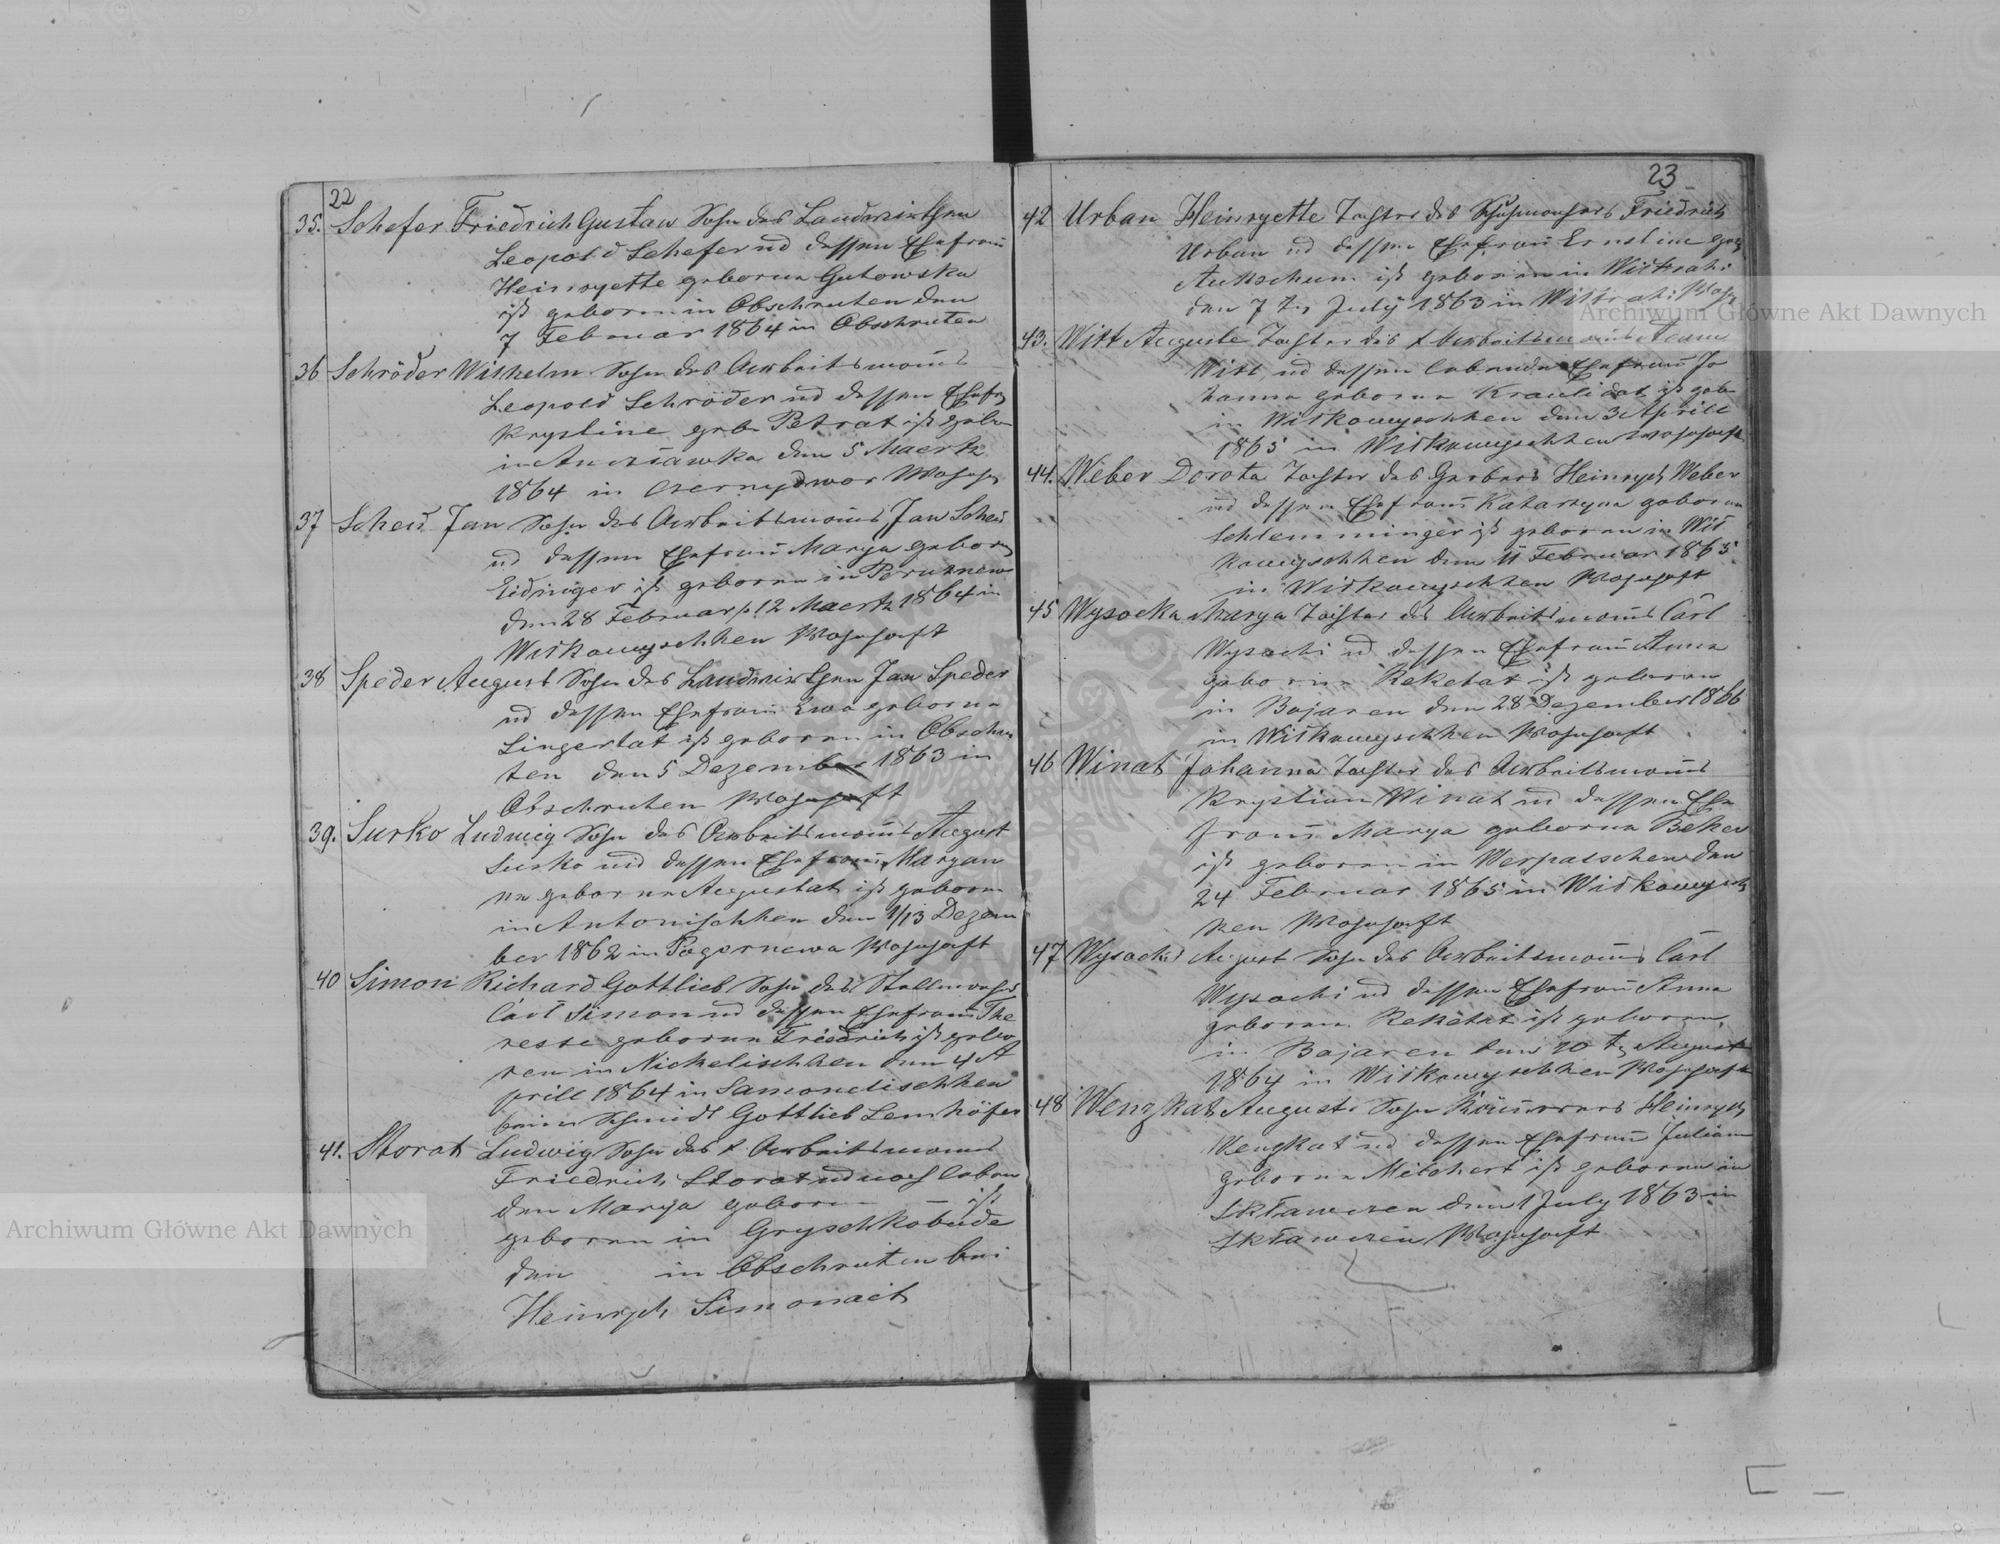 22
35. Schefer Friedrich Gustaw Sohn des Landwirthen
Leopold Schefer ud dessen Ehefrau
Heinryette geborne Gutowska
ist geboren in Obschruten den
7 Februar 1864 in Obschruten
36 Schröder Wilhelm Sohn des Arbeitsmans
Leopold Schröder ud dessen Ehefr
Krystine geb. Petrat ist gebo
in den 5 Maertz
1864 in Czernydwor Wohnh
37 Scheu Jan Sohn des Arbeitsmans Jan Scheu
ud dessen Ehefrau Marya geboren
Eidniger ist geboren in
den 28 Februar/12 Maertz 1864 in
Wilkowyschken Wohnhaft
38 Speder August Sohn des Landwirthen Jan Speder
ud dessen Ehefrau Ewa geborne
Singertat ist geboren in Obschru
ten den 5 Dezember 1863 in
Obschruten Wohnhaft
39. Surko Ludwig Sohn des Arbeitsmans August
Surko und dessen Ehefrau Maryan
na geborne Augustat ist geboren
in Antonischken den 1/13 Dezem
ber 1862 in Pogernewa Wohnhaft
40 Simon Richard Gottlieb Sohn des Stellmachers
Carl Simon ud dessen Ehefrau The
resse geborne Friedrich ist gebo
ren in Nickelischken den 4 A
prill 1864 in Samonelischken
beim Schmidt Gottlieb Lemhöfer
41. Storat Ludwig Sohn des † Arbeitsmans
Friedrich Storat ud noch leben
den Marya geboren — ist
geboren in Gryschkobude
den in Obschruten bei
Heinrych Simonait
23
42 Urban Heinryette Tochter des Schuhmachers Friedrich
Urban ud dessen Ehefrau Ernstine geb
Aukschun ist geboren in
den 7 tg July 1863 in Wohnh
43. Witt Auguste Tochter des † Arbeitsmans Adam
Witt, ud dessen lebende Ehefrau Jo
hanna geborne Kraulidat ist gebo
in Wilkowyschken den 3 Aprill
1865 in Wilkowyschken Wohnhaft
44. Weber Dorota Tochter des Gerbers Heinrych Weber
ud dessen Ehefrau Katarzyna geborne
Schlemminger ist geboren in Wil
kowyschken den 11 Februar 1865
in Wilkowyschken Wohnhaft
45 Wysocka Marya Tochter des Arbeitsmans Carl
Wysocki ud dessen Ehefrau Anna
geborne Reketat ist geboren
in Bojaren den 28 Dezember 1866
in Wilkowyschken Wohnhaft
46 Winat Johanna Tochter des Arbeitsmans
Krystian Winat ud dessen Ehe
frau Marya geborne Beker
ist geboren in Werpatschen den
24 Februar 1865 in Wilkowysch
ken Wohnhaft
47 Wysocki August Sohn des Arbeitsmans Carl
Wysocki ud dessen Ehefrau Anna
geboren Reketat ist geboren
in Bojaren den 20 tg August
1864 in Wilkowyschken Wohnhaft
48 Wenzkat August Sohn Heinrych
Wenzkat ud dessen Ehefrau Juliane
geborne Milchert ist geboren in
den 1 July 1863 in
Wohnhaft
Archiwum Główne Akt Dawnych
Archiwum Główne Akt Dawnych